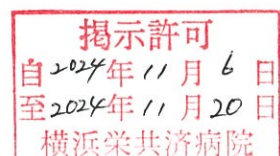 掲示許可
自2024年11月6日
至2024年11月20日
横浜栄共済病院